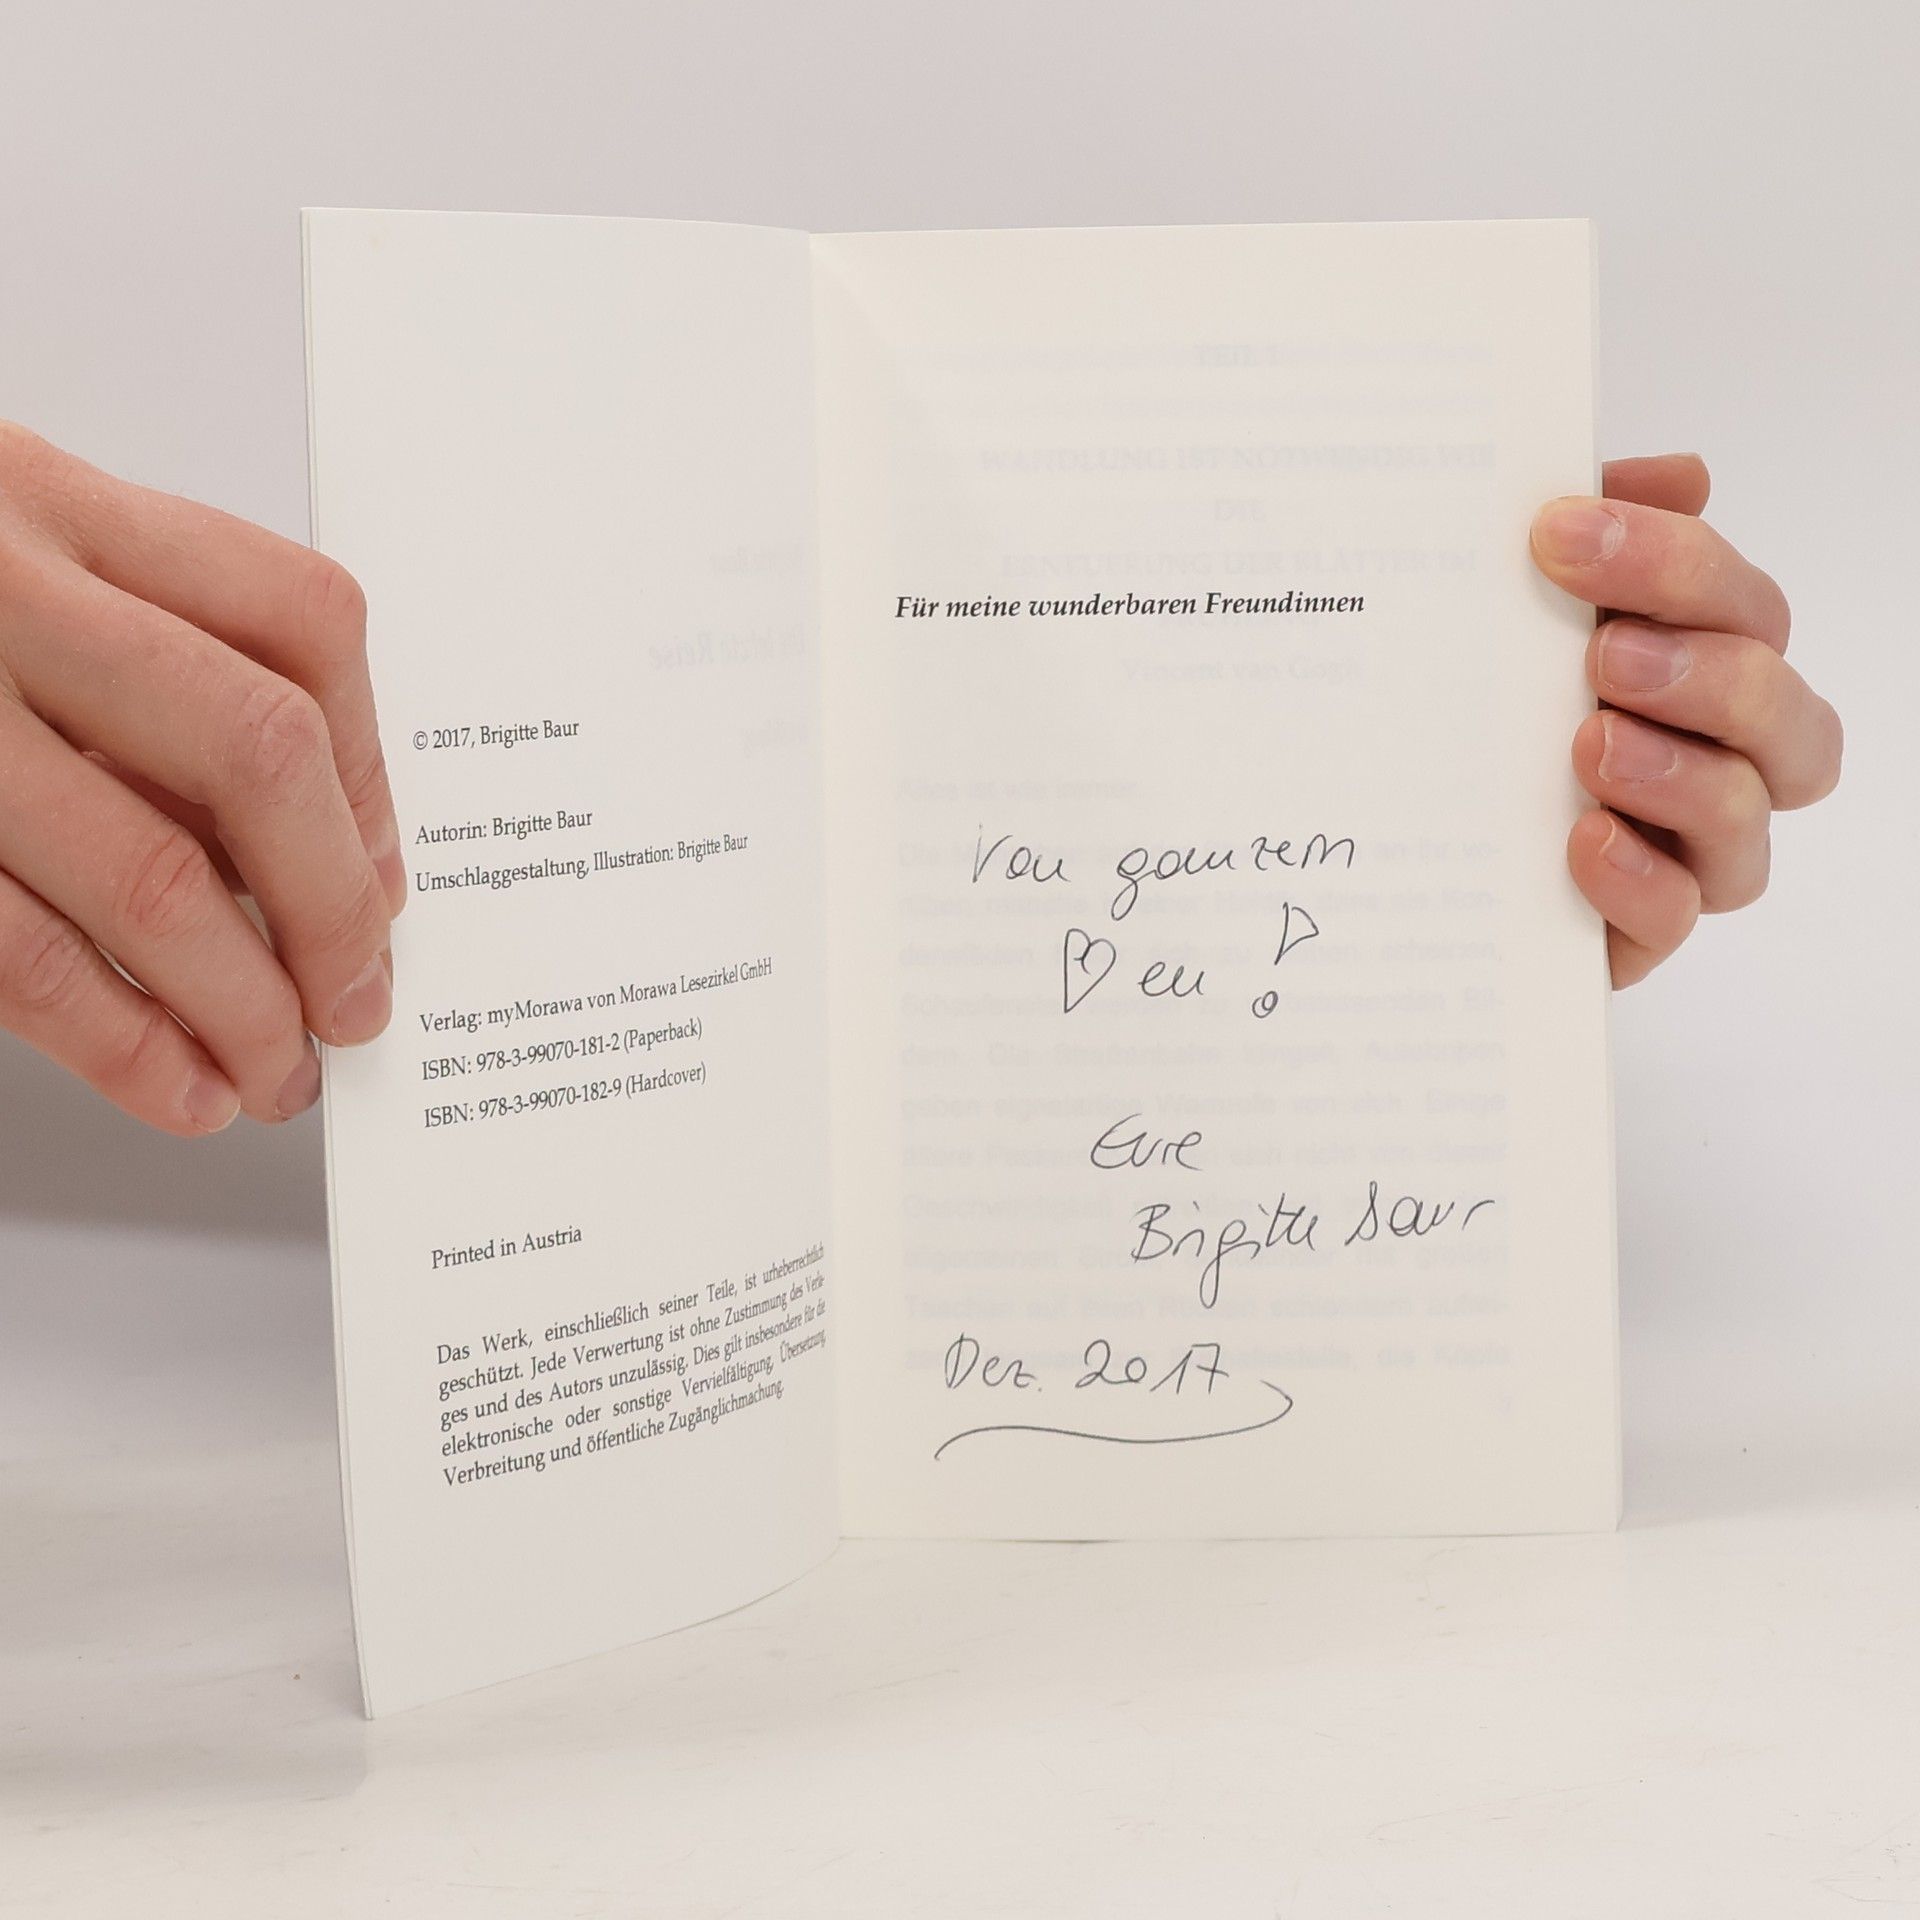 © 2017, Brigitte Baur
Autorin: Brigitte Baur
Umschlaggestaltung, Illustration: Brigitte Baur
Verlag: myMorawa von Morawa Lesezirkel GmbH
ISBN: 978-3-99070-181-2 (Paperback)
ISBN: 978-3-99070-182-9 (Hardcover)
Printed in Austria
Das Werk, einschließlich seiner Teile, ist urheberrechtlich
geschützt. Jede Verwertung ist ohne Zustimmung des Verla-
ges und des Autors unzulässig. Dies gilt insbesondere für die
elektronische oder sonstige Vervielfältigung, Übersetzung,
Verbreitung und öffentliche Zugänglichmachung.
Für meine wunderbaren Freundinnen
Von ganzem
♡en!
Eure
Brigitte Baur
Dez. 2017